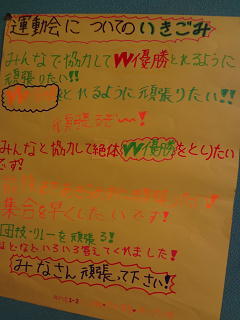 運動会についてのいきごみ
みんなで協力してW優勝とれるように
頑張りたい!!
とれるように頑張りたい!!
頑張るぞ〜!
みんなと協力して絶体W優勝をとしりたい
です!
集合を早くしたいです!
団技・リレーを頑張る!!
などなどいろいろ答えてくれました!
みなさん頑張って下さい!!